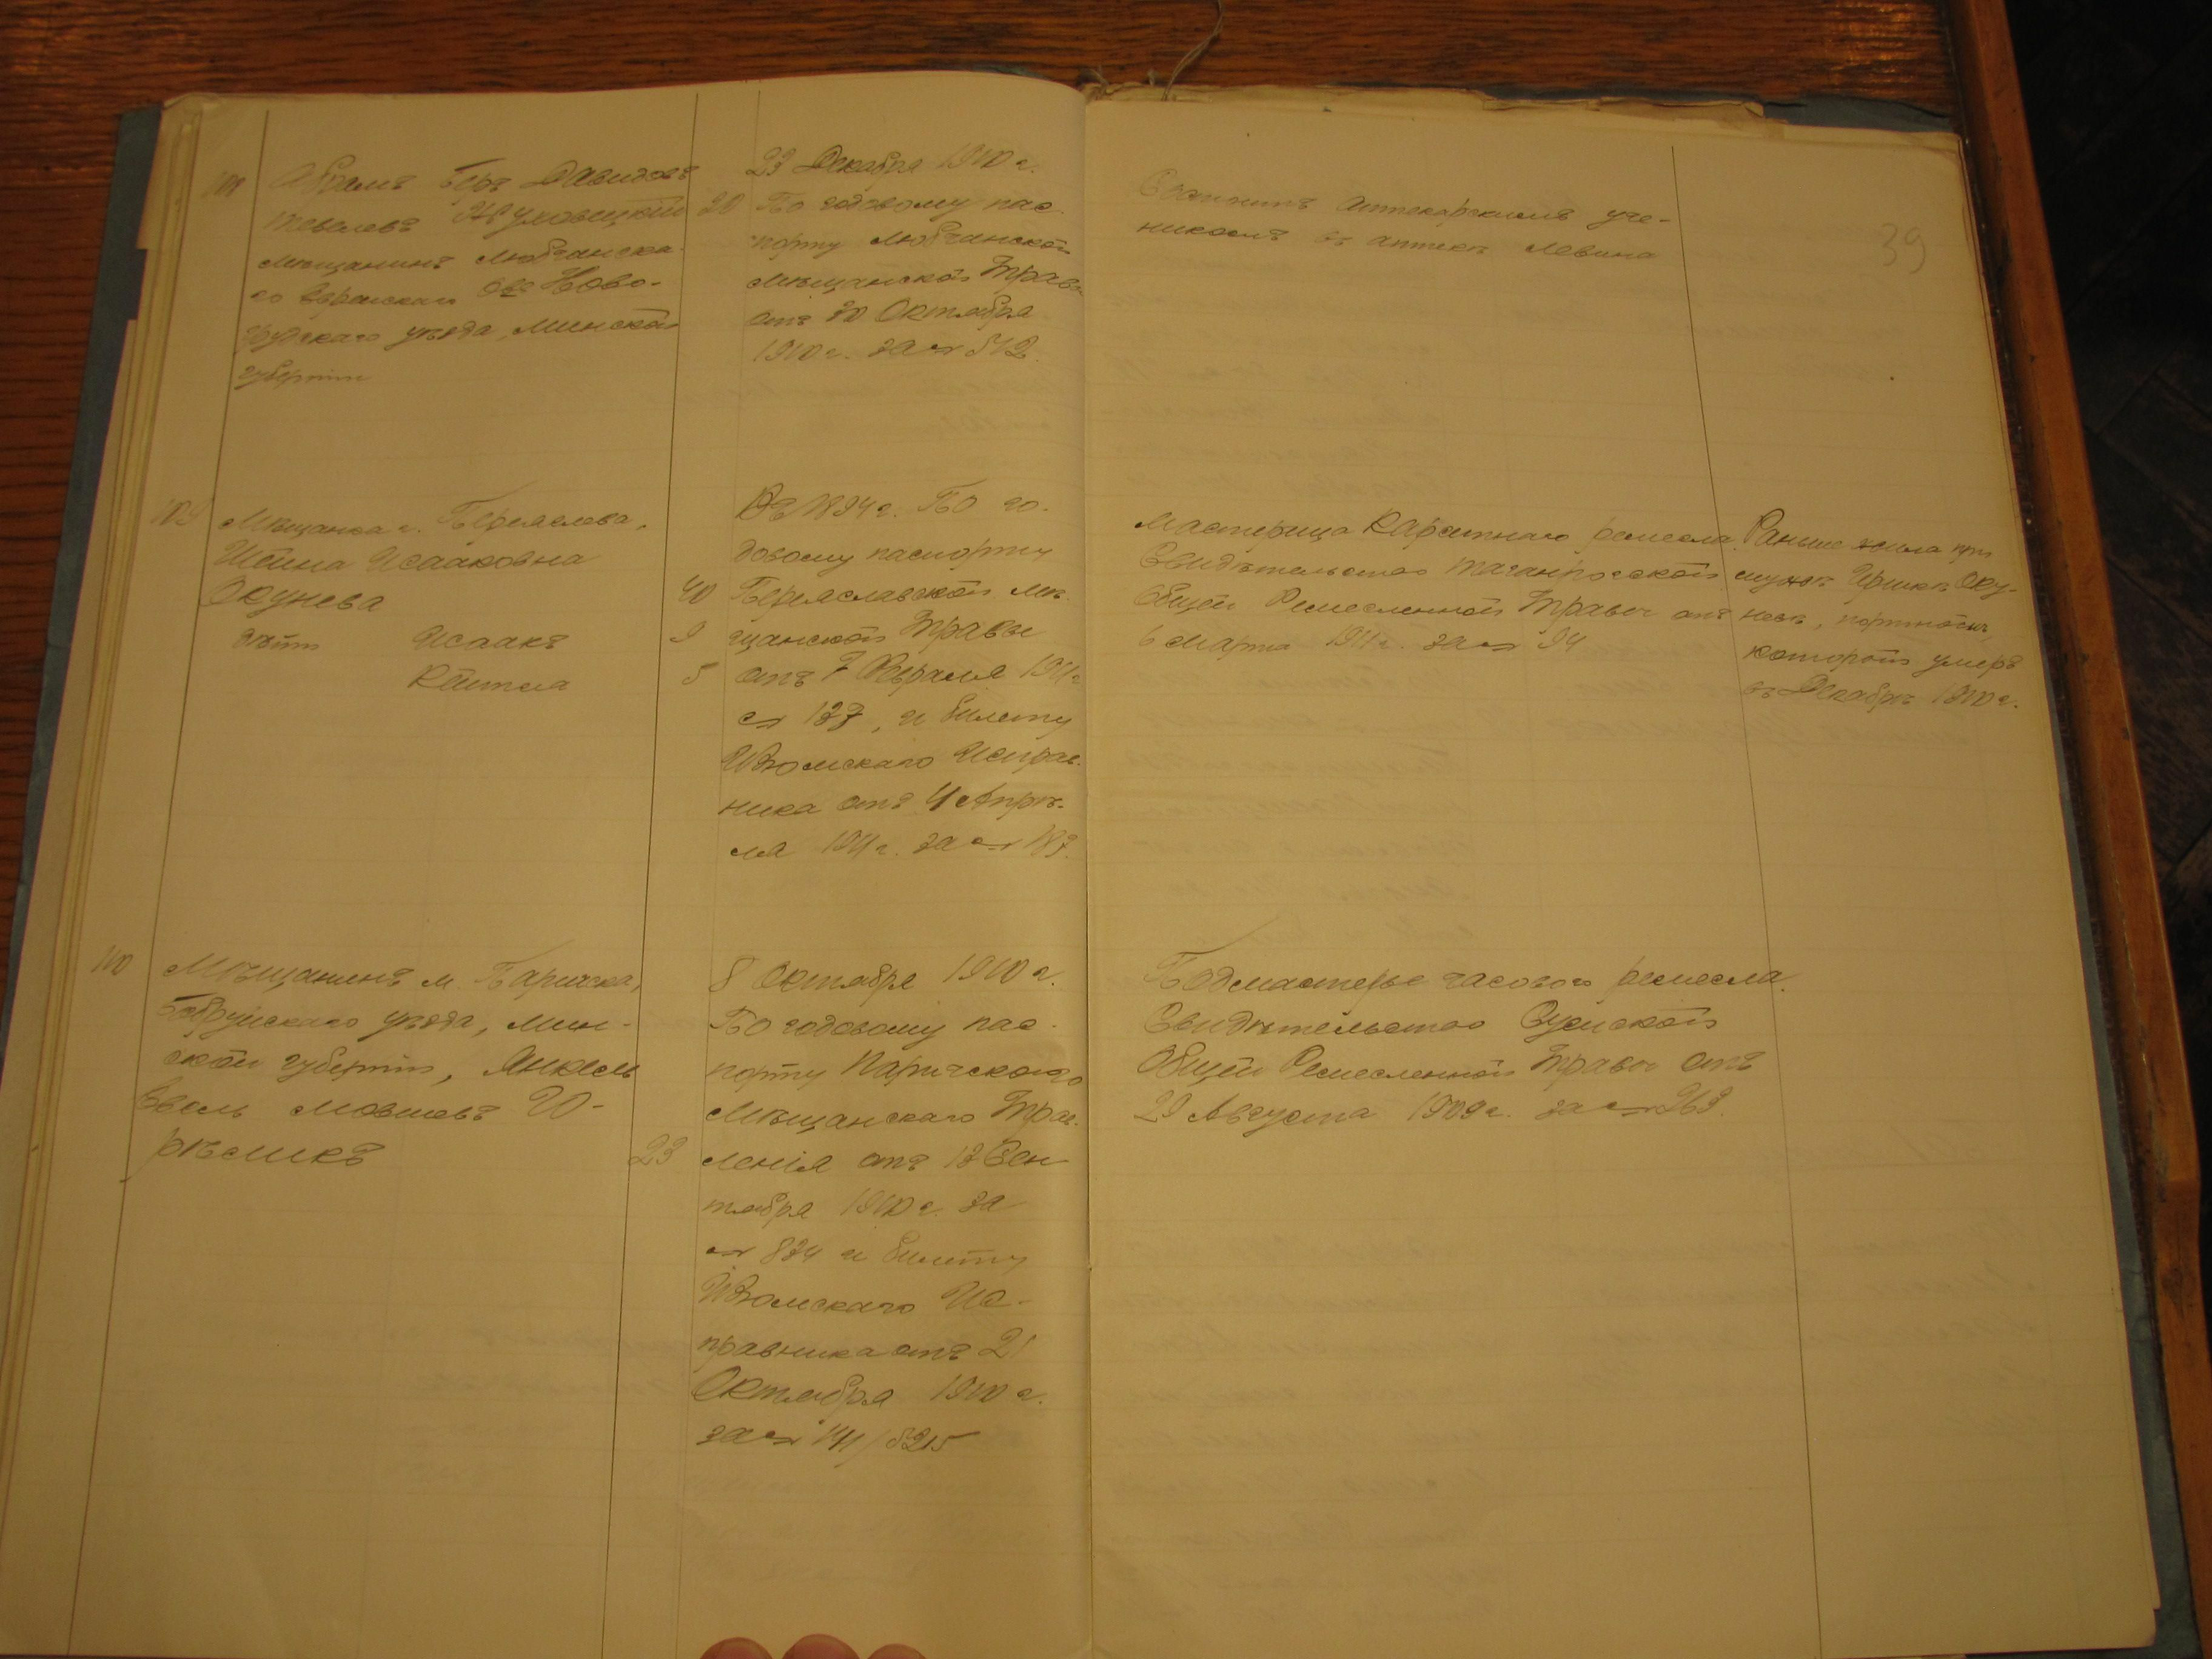 Абрамъ Беръ Давидовъ
Жуховицкій
мѣщанинъ Любчанска-
го Еврейскаго О-ва Ново-
грудскаго уѣзда, Минской
губерніи
20
23 Декабря 1910 г.
По годовому пас-
порту Любчанской
Мѣщанской Управы
отъ 20 Октября
1910 г. за № 512.
Состоитъ аптекарскимъ уче-
никомъ въ аптекѣ Левина
39
109
Мѣщанка г. Переяслева,
Шейна Исааковна
Окунева
дѣти Исаакъ
Кейла
40
9
5
Съ 1894 г. По го-
довому паспорту
Переяславской Мѣ-
щанской Управы
отъ 7 Февраля 1911 г.
№ 127, и билету
Изюмскаго Исправ-
ника отъ 4 Апрѣ-
ля 1911 г. за № 187.
Мастерица корсетнаго ремесла.
Свидѣтельство Таганрогской
Общей Ремесленной Управы отъ
6 Марта 1911 г. за № 94
Раньше жила при
мужѣ Иршкѣ Оку-
невѣ, портномъ,
который умеръ
въ Декабрѣ 1910 г.
110
Мѣщанинъ м. Паричска,
Бобруйскаго уѣзда, Мин-
ской губерніи, Янкель
Евель Мовшевъ Ю-
23
8 Октября 1910 г.
По годовому пас-
порту Паричского
Мѣщанскаго Прав-
ленія отъ 13 Сен-
тября 1910 г. за
№ 834 и билету
Изюмскаго Ис-
правника отъ 21
Октября 1910 г.
за № 141/5215
Подмастерье часового ремесла.
Свидѣтельство Сумской
Общей Ремесленной Управы отъ
29 Августа 1909 г. за № 263.